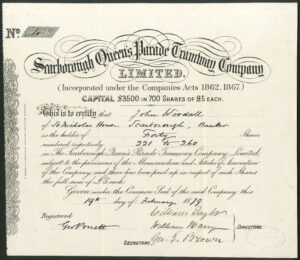 No.
Scarborough Queen's Parade Tramway Company
LIMITED.
(Incorporated under the Companies Acts 1862, 1867.)
CAPITAL £3500 IN 700 SHARES OF £5 EACH.
This is to certify that John Woodall
of St Nicholas House Scarborough, Banker
is the holder of Forty Shares
numbered respectively 221 to 260
in The Scarborough Queen's Parade Tramway Company, Limited,
subject to the provisions of the Memorandum and Articles of Association
of the Company, and there has been paid up in respect of such Shares
the full sum of £5 each.
Given under the Common Seal of the said Company this
19th day of February 1879
Registered
William
William
DIRECTORS.
SECRETARY.